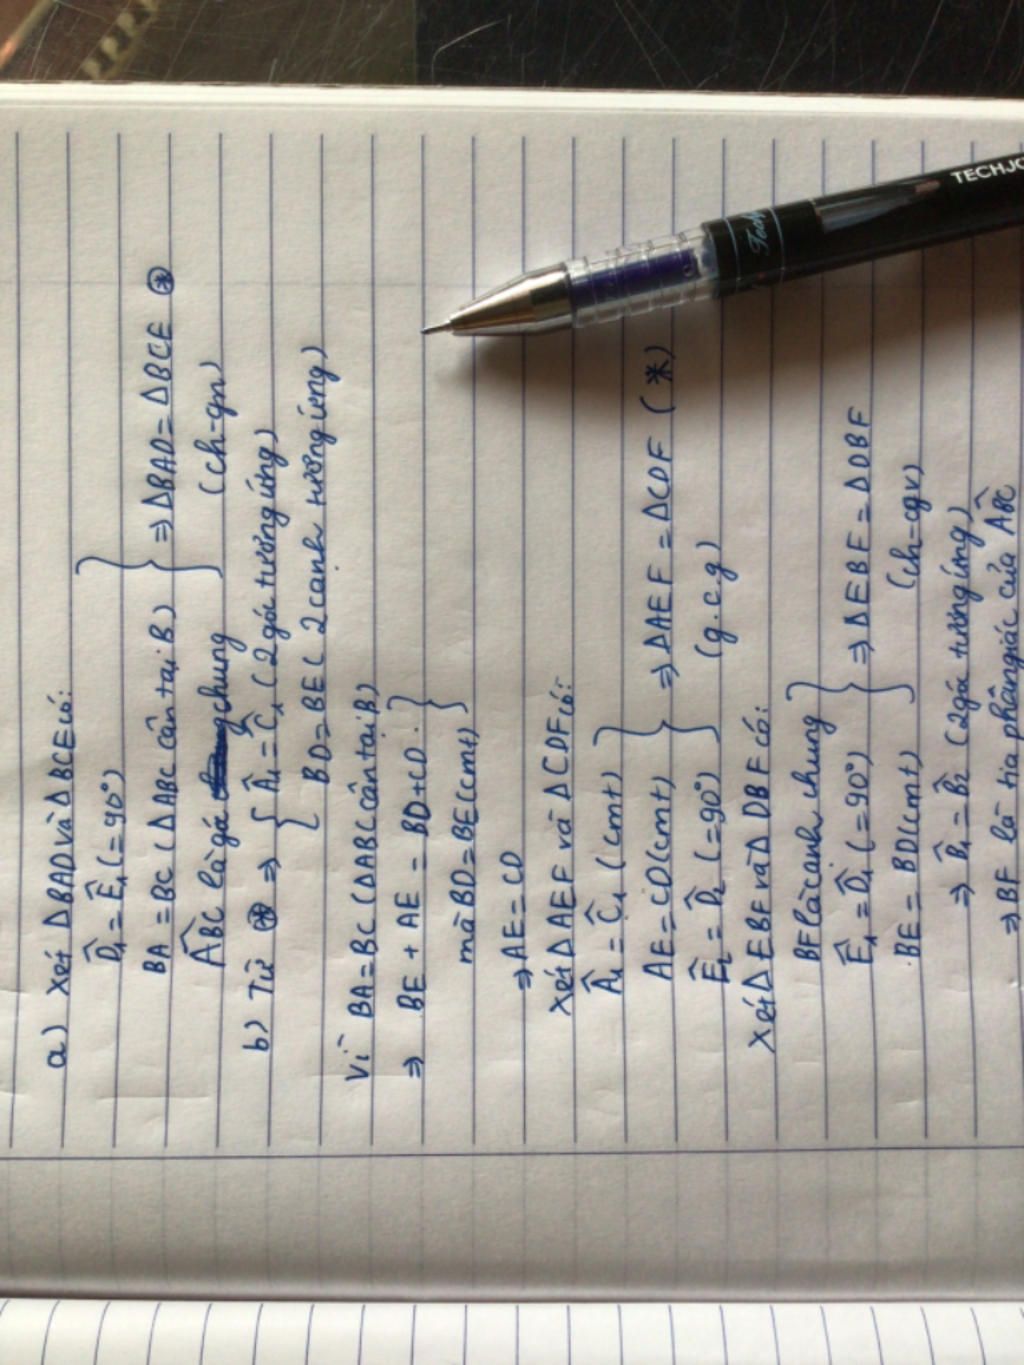 a) Xét ΔBAD và ΔBCE có:
D̂₁ = Ê₁ (= 90°)
BA = BC (ΔABC cân tại B) } ⇒ ΔBAD = ΔBCE ⊛
ABĈ là góc chung (ch-gn)
b) Từ ⊛ ⇒ { Â₁ = Ĉ₁ (2 góc tương ứng)
BD = BE (2 cạnh tương ứng)
Vì BA = BC (ΔABC cân tại B)
⇒ BE + AE = BD + CD }
mà BD = BE (cmt)
⇒ AE = CD
Xét ΔAEF và ΔCDF có:
Â₁ = Ĉ₁ (cmt)
AE = CD (cmt) } ⇒ ΔAEF = ΔCDF (*)
Ê₂ = D̂₂ (= 90°) (g.c.g)
Xét ΔEBF và ΔDBF có:
BF là cạnh chung
Ê₁ = D̂₁ (= 90°) } ⇒ ΔEBF = ΔDBF
BE = BD (cmt) (ch-cgv)
⇒ B̂₁ = B̂₂ (2 góc tương ứng)
⇒ BF là tia phân giác của AB̂C
TECHJO